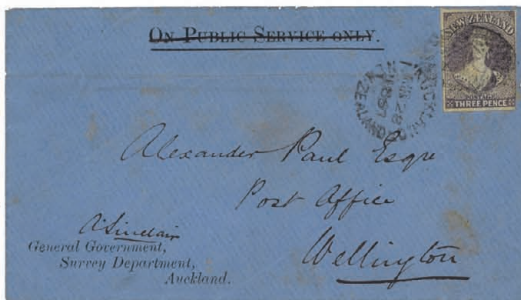 On Public Service only.
NEW ZEALAND
POSTAGE
THREE PENCE
Alexander Paul Esqre
Post Office
Wellington
A Sinclair
General Government,
Survey Department,
Auckland.